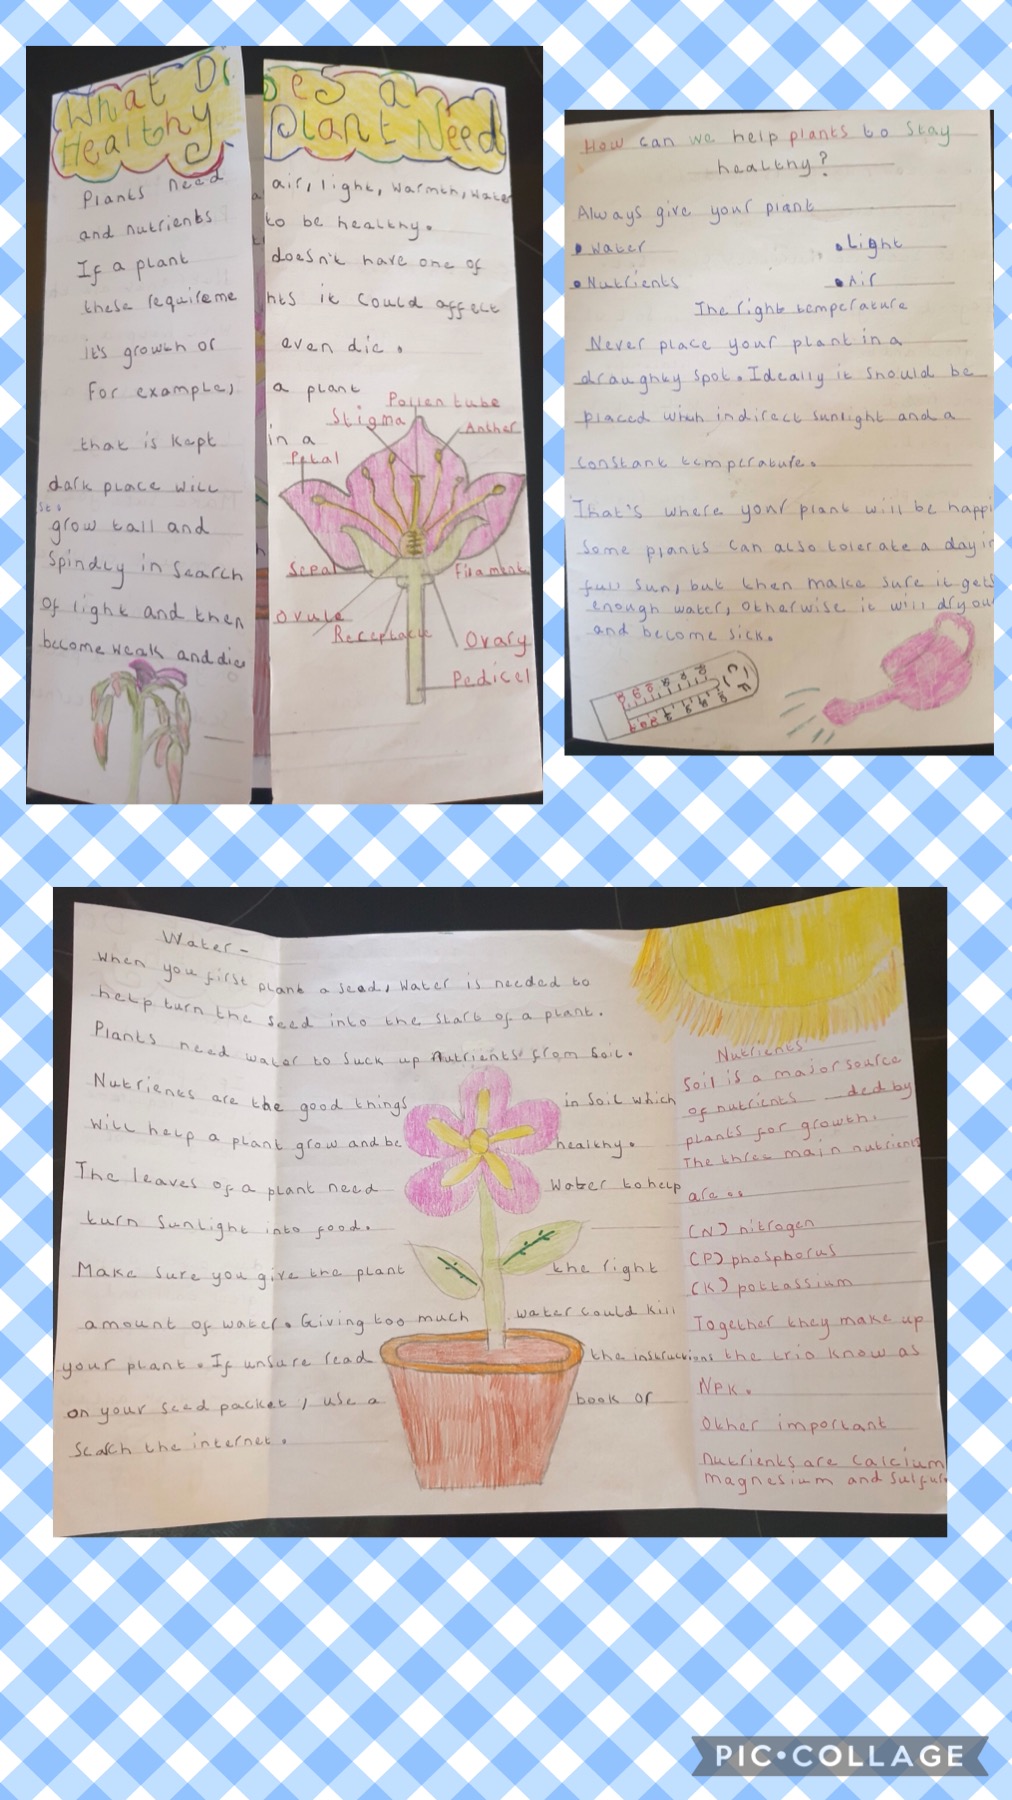 What Does a
Healthy Plant Need
Plants need air, light, warmth, water
and nutrients to be healthy.
If a plant doesn't have one of
these requirements it could affect
it's growth or even die.
For example, a plant
that is kept in a
dark place will
grow tall and
spindly in search
of light and then
become weak and die
Pollen tube
Stigma
Anther
Petal
Sepal
Filament
Ovule
Receptacle
Ovary
Pedicel
How can we help plants to stay
healthy?
Always give your plant
• Water • Light
• Nutrients • Air
The right temperature
Never place your plant in a
draughty spot. Ideally it should be
placed when indirect sunlight and a
constant temperature.
That's where your plant will be happi
Some plants can also tolerate a day in
full sun, but then make sure it gets
enough water, otherwise it will dry out
and become sick.
Water -
When you first plant a seed, water is needed to
help turn the seed into the start of a plant.
Plants need water to suck up nutrients from soil.
Nutrients are the good things in soil which
will help a plant grow and be healthy.
The leaves of a plant need water to help
turn sunlight into food.
Make sure you give the plant the right
amount of water. Giving too much water could kill
your plant. If unsure read the instructions
on your seed packet, use a book or
search the internet.
Nutrients
Soil is a major source
of nutrients ded by
plants for growth.
The three main nutrients
are
(N) nitrogen
(P) phosphorus
(K) pottassium
Together they make up
the trio know as
NPK.
Other important
nutrients are calcium
magnesium and sulfur
PIC•COLLAGE